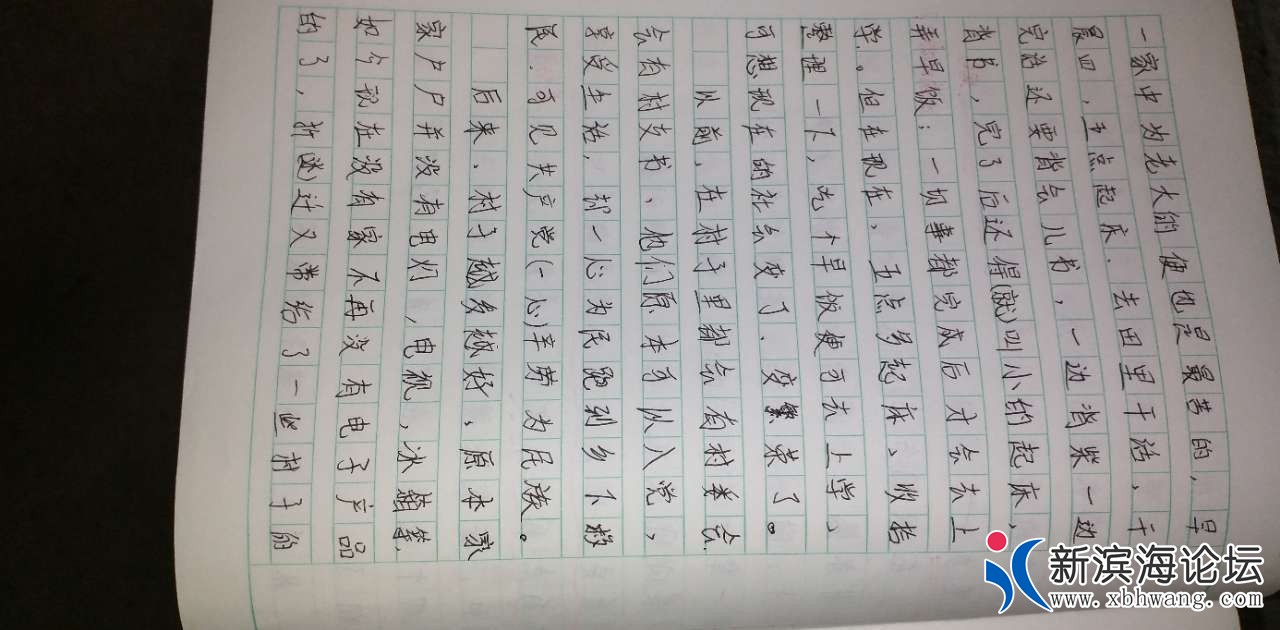 一家中为老大的便也是最苦的，早
晨四、五点起床．去田里干活，干
完活还要背会儿书，一边消柴一边
背书，完了后还得(就)叫小的起床，
弄早饭；一切事都完成后才会去上
学。但在现在，五点多起床、收拾
整理一下，吃个早饭便可去上学、
可想现在的社会变了．变繁荣了。
以前．在村子里都会有村委会
会有村支书、他们原本可以入党，
享受生活，却一心为民跑到乡下救
民．可见共产党(一心)辛劳为民族。
后来．村子越多越好、原本家
家户户并没有电灯，电视，冰箱等
如今现在没有家不再没有电子产品
的了，折 过又常给了一些村子的
新滨海论坛
www.xbhwang.com